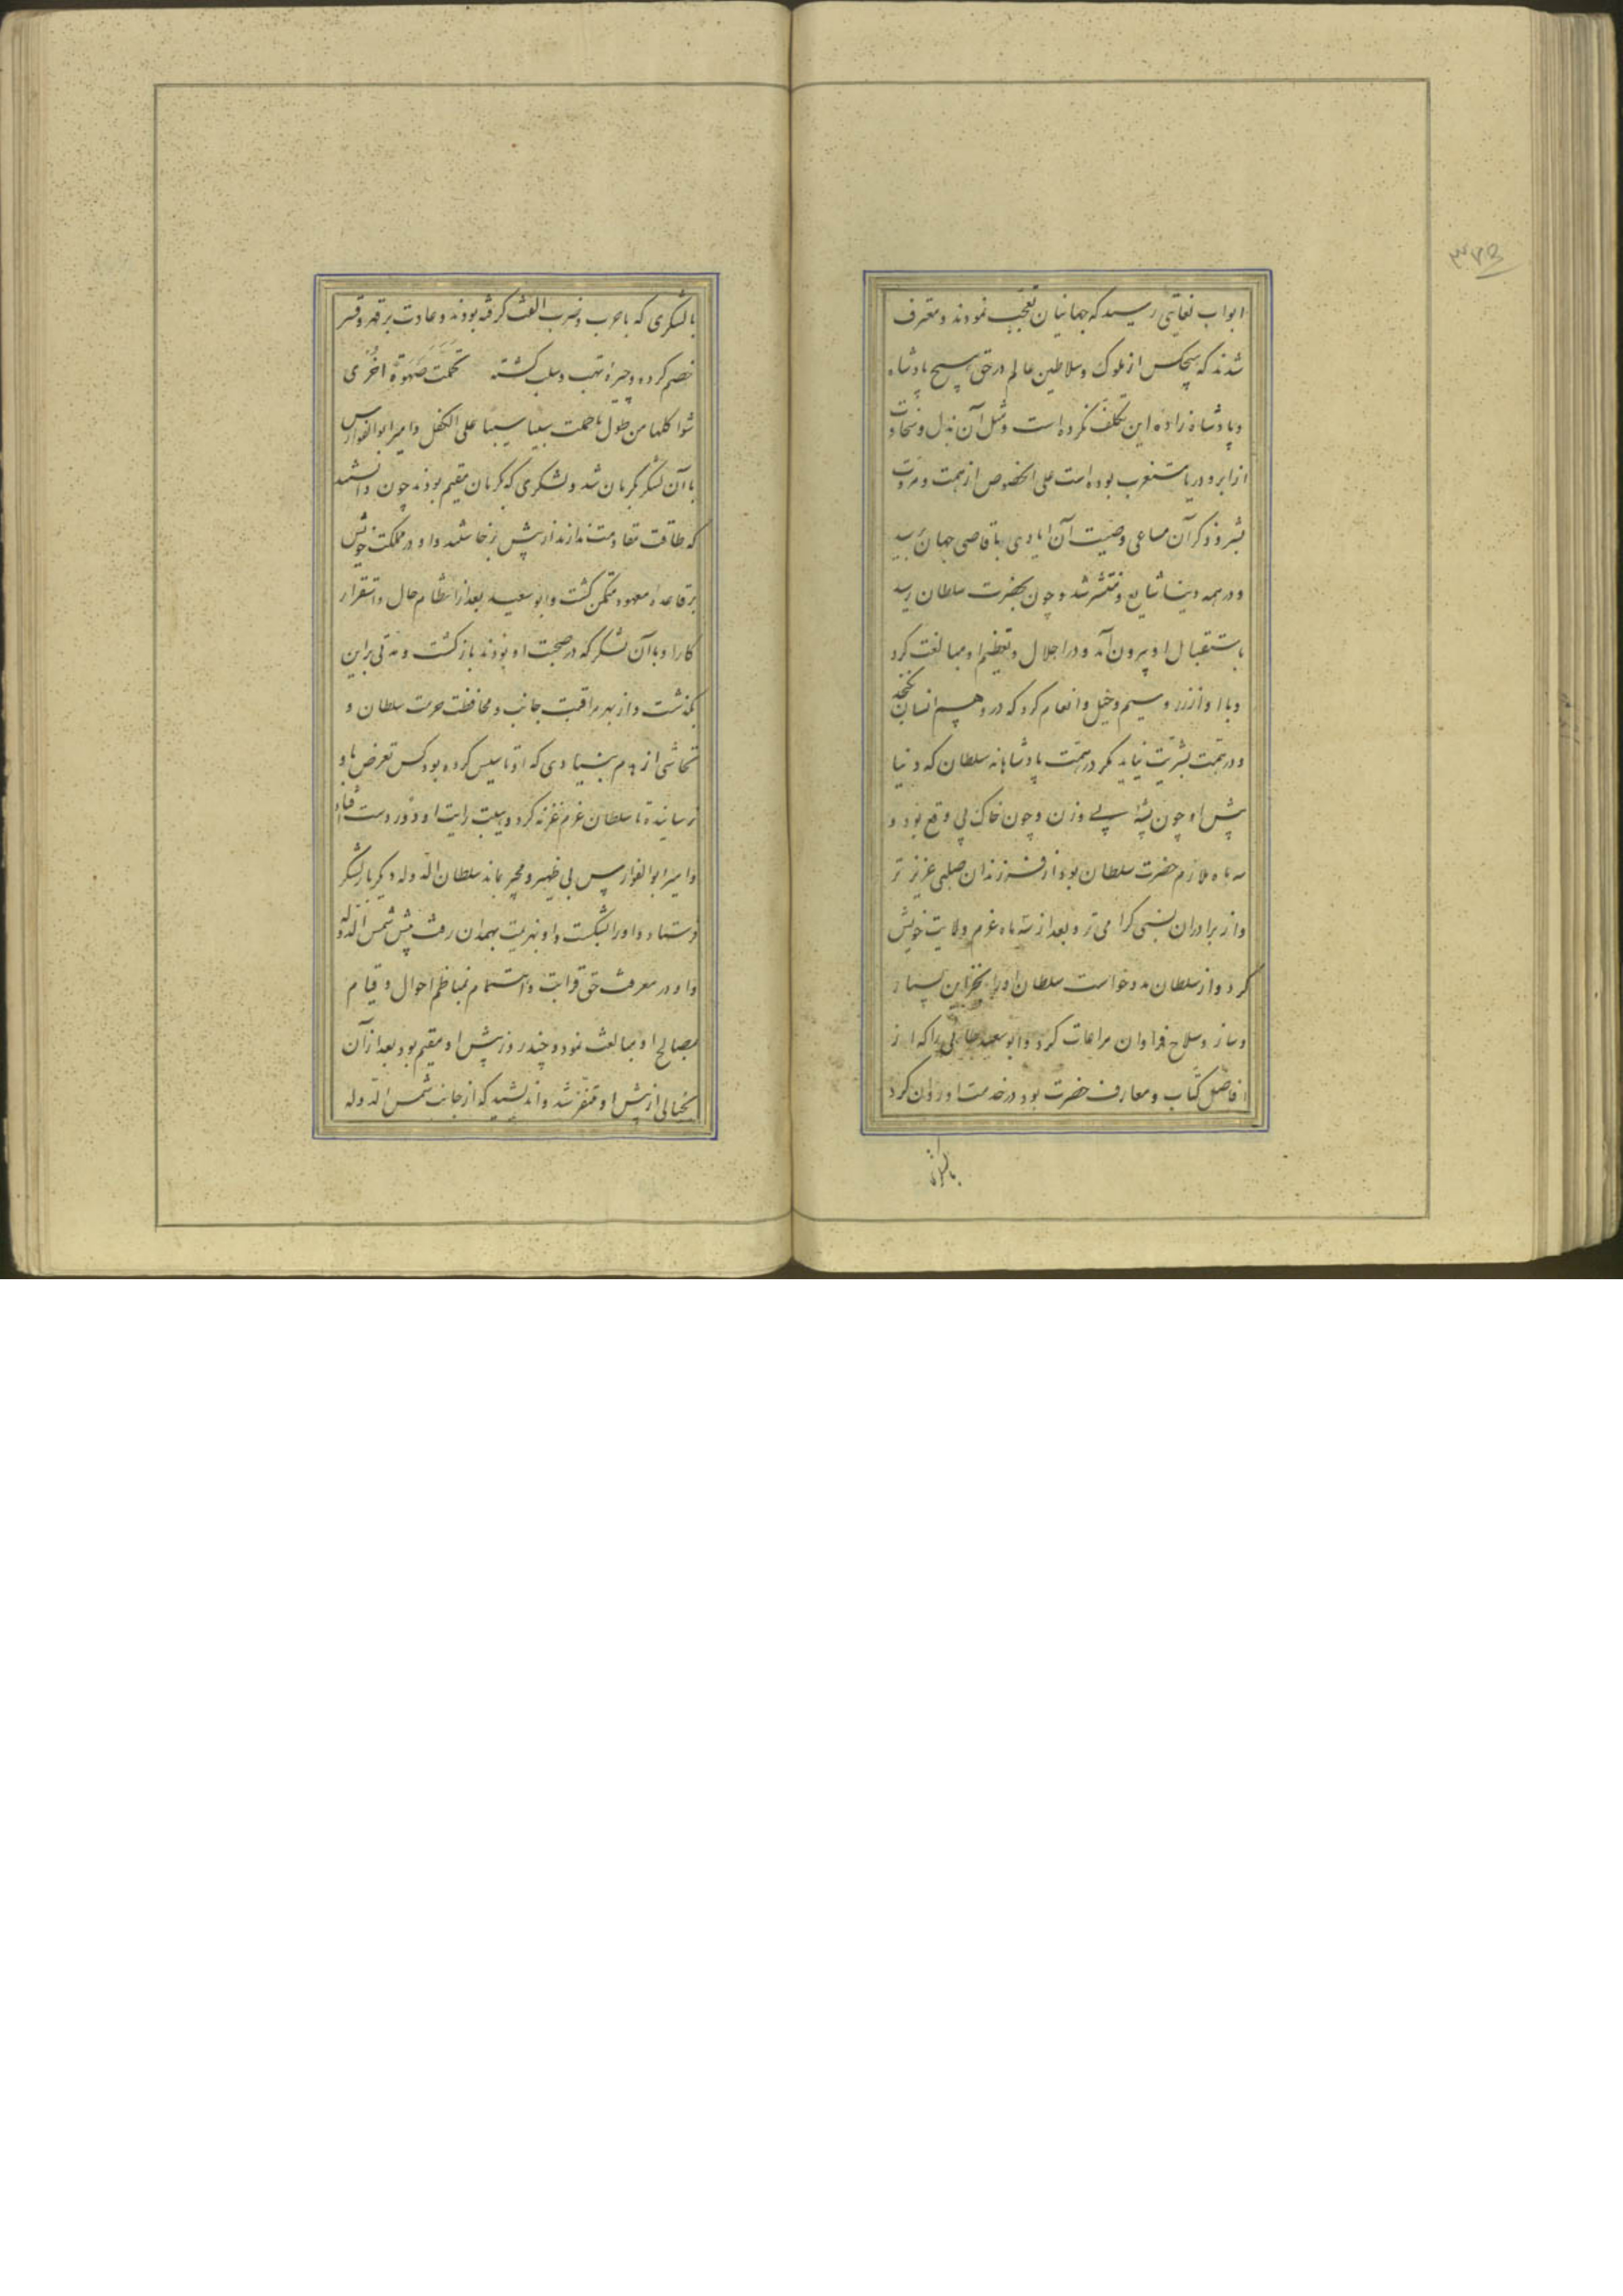 ابواب بغایتی رسید که جهانیان تعجب نمودند و معترف
شدند که هیچکس از ملوک و سلاطین عالم در حق هیچ پادشاه
و پادشاه زاده این تکلف نکرده است و مثل آن بذل و سخاوت
از ابر و دریا مستغرب بوده است علی الخصوص از همت و مروت
بشر و ذکر آن مساعی و صیت آن ایادی باقاصی جهان رسید
و در همه دنیا شایع و منتشر شد و چون بحضرت سلطان رسید
باستقبال او بیرون آمد و در اجلال و تعظیم او مبالغت کرد
و با او از زر و سیم و خیل و انعام کرد که در وهم انسان نگنجد
و در همت بشریت نیاید مگر در همت پادشاهانه سلطان که دنیا
پیش او چون پشه بی وزن و چون خاک بی وقع بود و
سه ماه ملازم حضرت سلطان بود از فرزندان صلبی عزیز تر
و از برادران نسبی گرامی تر و بعد از سه ماه عزم ولایت خویش
کرد و از سلطان مدد خواست سلطان او را بخزاین بسیار
و ساز و سلاح فراوان مراعات کرد و ابو سعید طایی را که از
افاضل کتاب و معارف حضرت بود در خدمت او روان کرد
بالشکری
بالشکری که با حرب و ضرب الفت گرفته بودند و عادت بر قهر و قسر
خصم کرده و چیره نهب و سلب گشته تحمت صهوة اخری
شواکلها من طول ما حمت سبیا سیبا علی الکفل و امیر ابو الفوارس
با آن لشکر بکرمان شد و لشکری که بکرمان مقیم بودند چون دانستند
که طاقت مقاومت ندارند از پیش برخاستند و او در مملکت خویش
بر قاعده معهود متمکن گشت و ابو سعید بعد از انتظام حال و استقرار
کار او با آن لشکر که در صحبت او بودند بازگشت و مدتی براین
بگذشت و از بهر مراقبت جانب و محافظت حرمت سلطان و
تحاشی از هدم بنیادی که او تاسیس کرده بود کس تعرض باو
نرسانید تا سلطان عزم غزنه کرد و بسبب رایت او دور دست افتاد
و امیر ابو الفوارس بی ظهیر و مجیر بماند سلطان الدوله دیگر بار لشکر
فرستاد و او را بشکست و او بهزیمت بهمدان رفت پیش شمس الدوله
و او در معرفت حق قرابت و اهتمام بمناظم احوال و قیام
بمصالح او مبالغت نمود و چند روز پیش او مقیم بود بعد از آن
بخیالی از پیش او متنفر شد و اندیشید که از جانب شمس الدوله